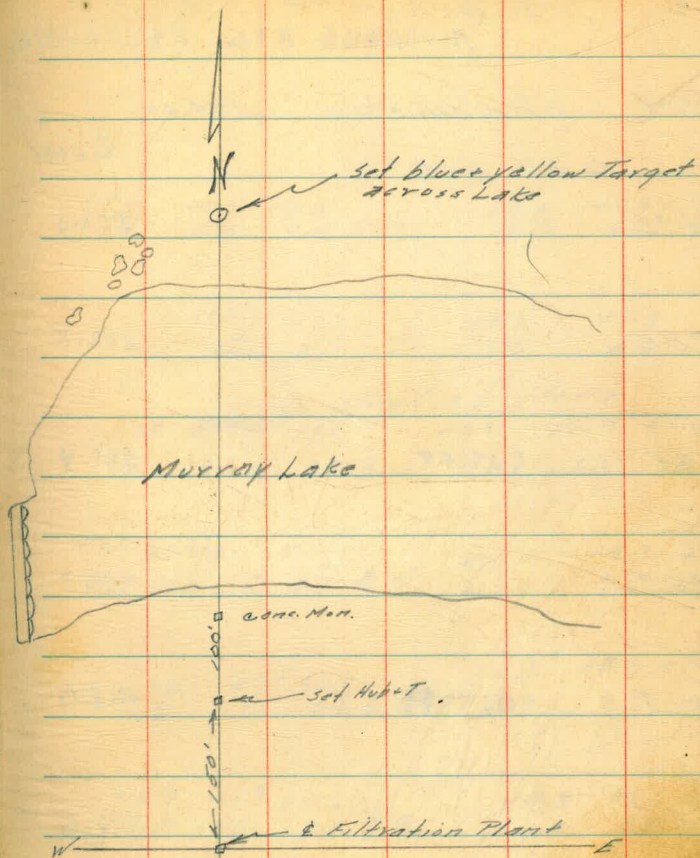 N
Set blue + yellow Target
across Lake
Murray Lake
Conc. Mon.
100'
Set Hub + T.
160'
℄ Filtration Plant
W E